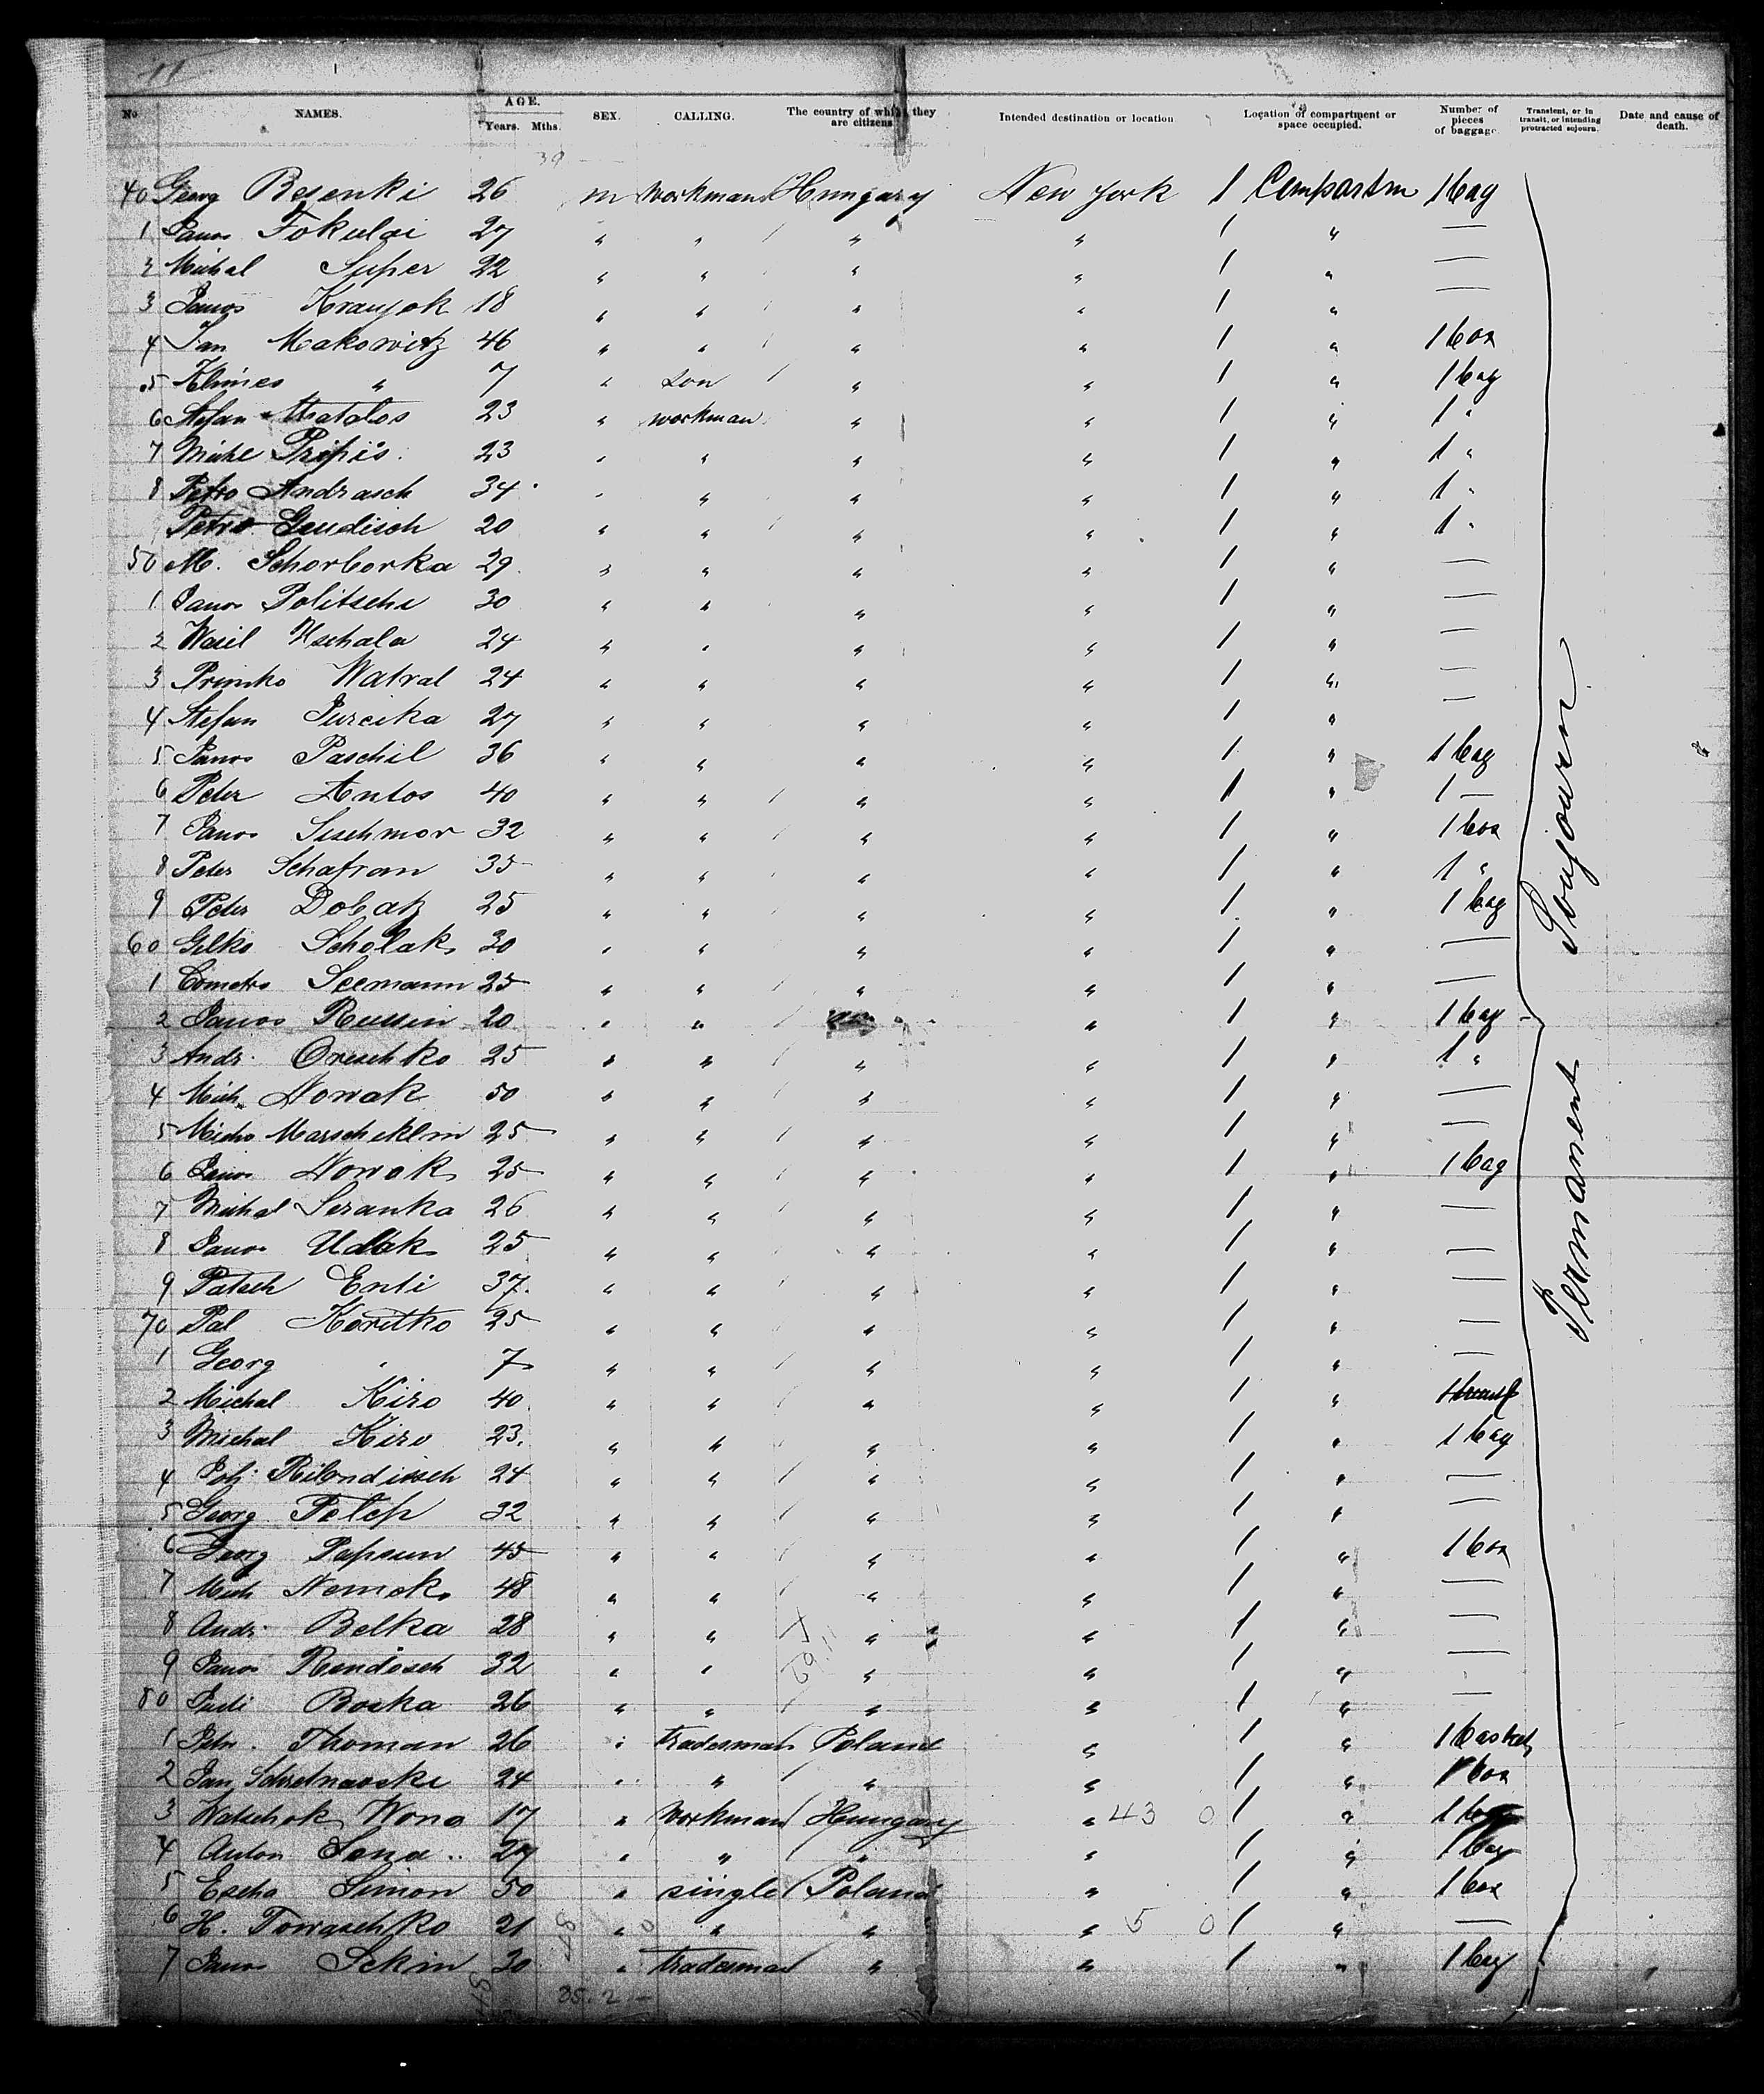 11
No NAMES. AGE. Years. Mths. SEX. CALLING. The country of which they are citizens. Intended destination or location Location of compartment or space occupied. Number of pieces of baggage. Transient, or in transit, or intending protracted sojourn. Date and cause of death.
39
40 Georg Besenki 26 m workman Hungary New York 1 Compartm 1 bag
1 Janos Fokulai 27 " " " " 1 " —
2 Michal Super 22 " " " " 1 " —
3 Janos Kranjok 18 " " " " 1 " —
4 Jan Makowitz 46 " " " " 1 " 1 box
5 Klimes " 7 " son " " 1 " 1 bag
6 Stefan Matalos 23 " workman " " 1 " 1 "
7 Mihl Pripis 23 " " " " 1 " 1 "
8 Petro Andrasch 34 " " " " 1 " 1 "
Petro Gendisch 20 " " " " 1 " 1 "
50 M. Schorborka 29 " " " " 1 " —
1 Janos Politschi 30 " " " " 1 " —
2 Wasil Uschala 24 " " " " 1 " —
3 Primko Watral 24 " " " " 1 " —
4 Stefan Jurcika 27 " " " " 1 " —
5 Janos Paschil 36 " " " " 1 " 1 bag
6 Peter Antos 40 " " " " 1 " 1 —
7 Janos Sischmor 32 " " " " 1 " 1 box
8 Peter Schafran 35 " " " " 1 " 1 "
9 Peter Dobatz 25 " " " " 1 " 1 bag
60 Gilko Scholak 30 " " " " 1 " —
1 Cometro Seemann 25 " " " " 1 " —
2 Janos Russin 20 " " " 1 " 1 bag
3 Andr. Oreschko 25 " " " " 1 " 1 "
4 Mich. Nowak 50 " " " " 1 " —
5 Micho Marscheklin 25 " " " " 1 " —
6 Janos Nowak 25 " " " " 1 " 1 bag
7 Michal Seranka 26 " " " " 1 " —
8 Janos Udlak 25 " " " " 1 " —
9 Patsch Enti 37 " " " " 1 " —
70 Pal Koritko 25 " " " " 1 " —
1 Georg " 7 " " " " 1 " —
2 Michal Kiro 40 " " " " 1 "
3 Michal Kiro 23 " " " " 1 " 1 bag
4 Joh. Ribndissch 24 " " " " 1 " —
5 Georg Felep 32 " " " " 1 " —
6 Georg Papsun 45 " " " " 1 " 1 box
7 Mich Nemok 48 " " " " 1 " —
8 Andr. Belka 28 " " " " 1 " —
9 Janos Rendosch 32 " " " " 1 " —
80 Boska 26 " " " " 1 " —
1 Petr. Thoman 26 " tradesman Poland " 1 " 1 basket
2 Jan Schretnawski 24 " " " " 1 " 1 box
3 Watschok Wona 17 " workman Hungary " 43 0 1 " 1
4 Anton Sena 27 " " " " 1 " 1 bag
5 Escha Simon 50 " single Poland " 1 " 1 box
6 H. Towaschko 21 " " " " 5 0 1 " —
7 Janos Sekin 30 " tradesman " " 1 " 1 bag
Permanent Soujourn